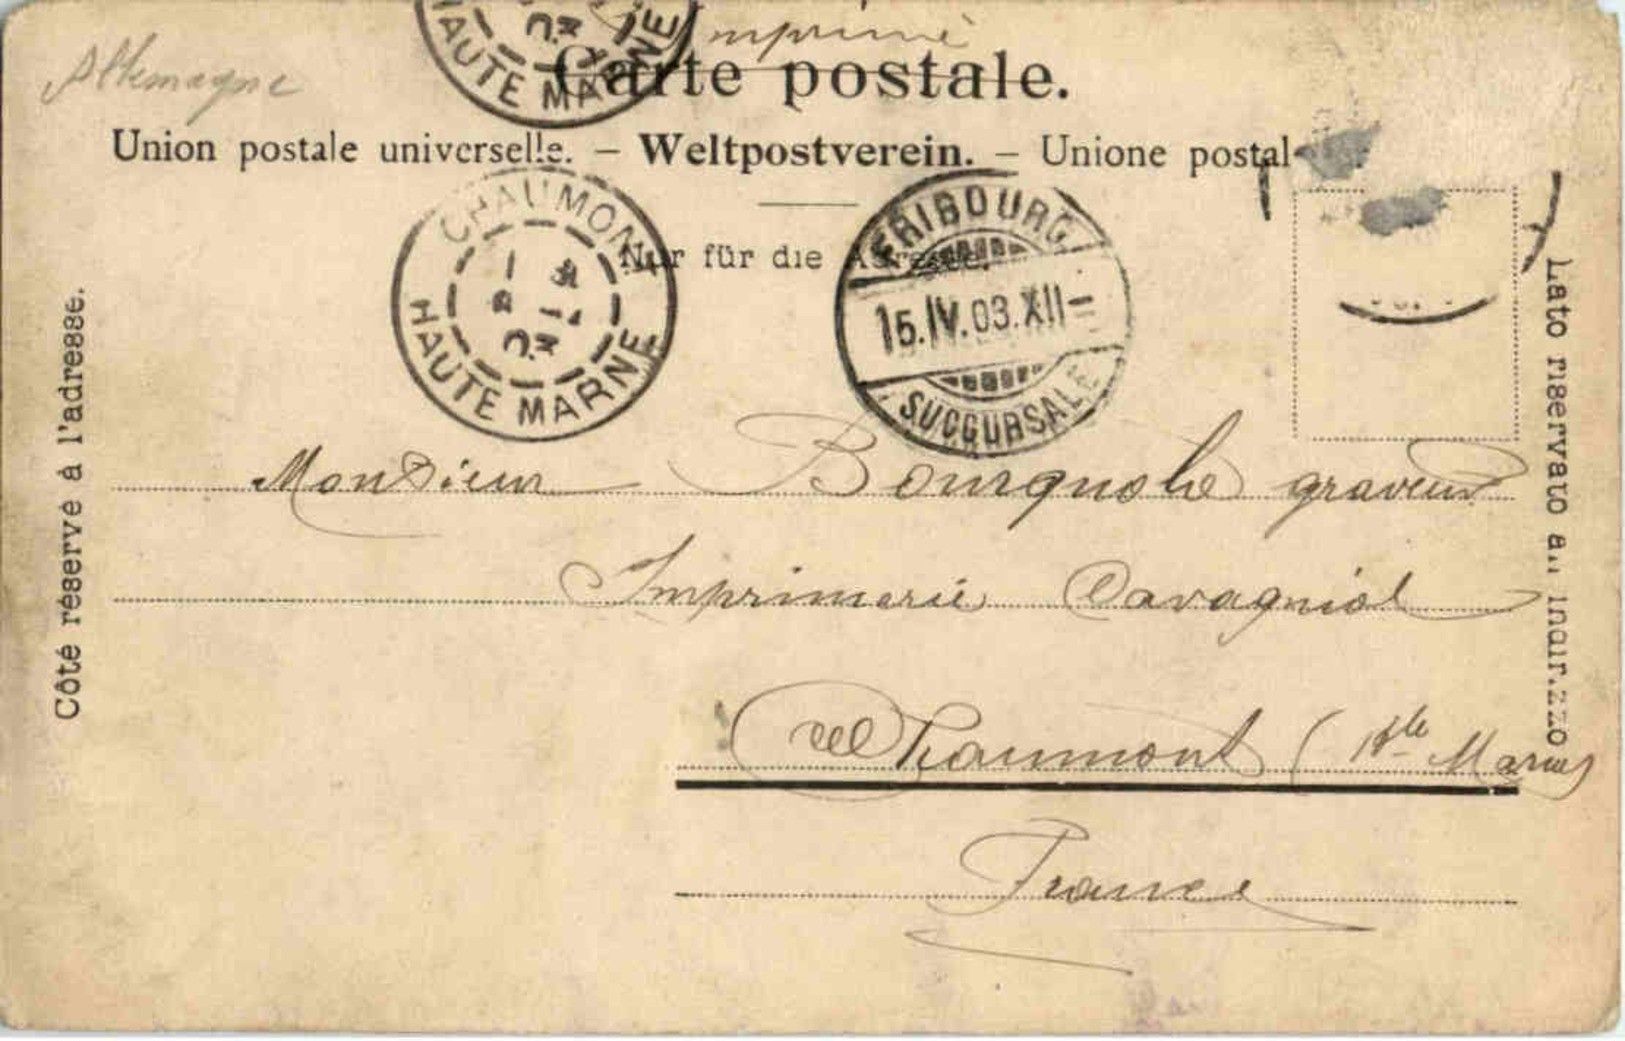 Allemagne
Imprimé
Carte postale.
Union postale universelle. – Weltpostverein. – Unione postal
Nur für die Adresse.
HAUTE MARNE
CHAUMONT
HAUTE MARNE
FRIBOURG
15.IV.03.XII–
SUCCURSALE
Côté réservé à l'adresse.
Lato riservato all'indirizzo
Monsieur Bourgnole graveur
Imprimerie Cavaniol
Chaumont (Hte Marne)
France